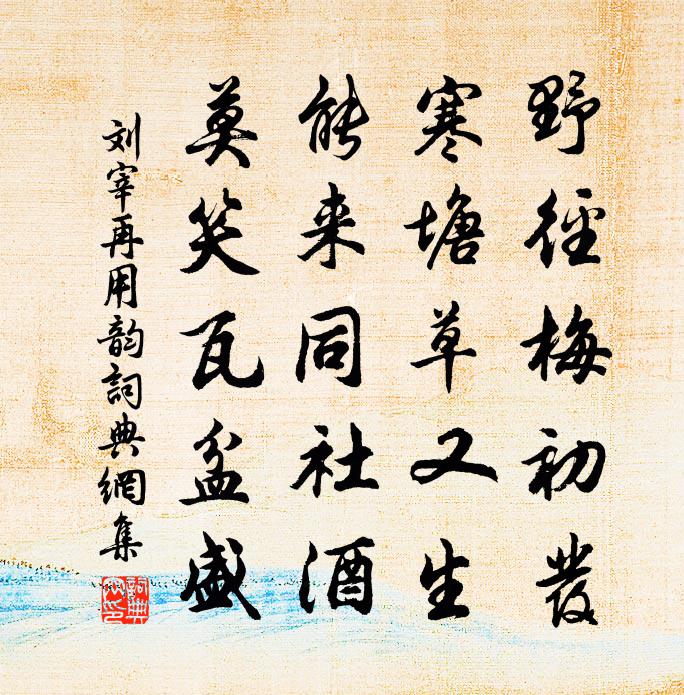 野徑梅初發
寒塘草又生
能来同社酒
莫笑瓦盆盛
刘宰再用韵詞典網集